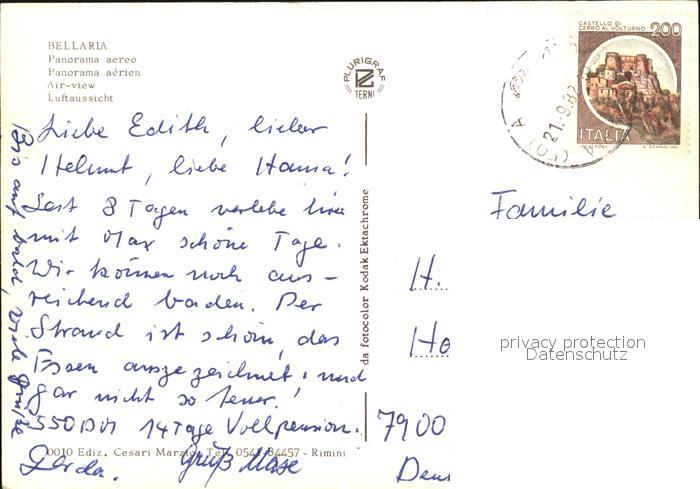 BELLARIA
Panorama aereo
Panorama aérien
Air-view
Luftaussicht
PLURIGRAF
TERNI
CASTELLO DI
CERRO AL VOLTURNO 200
ITALIA
21.9.82
(FO)
Liebe Edith, lieber
Helmut, liebe Hanna!
Seit 8 Tagen verlebe hier
mit Max schöne Tage.
Wir können noch aus-
reichend baden. Der
Strand ist schön, das
Essen ausgezeichnet und
gar nicht so teuer!
550 DM 14 Tage Vollpension.
Gerda. Gruß
Bis auf bald, viele Grüße
0010 Ediz. Cesari Marzio - Tel. 0541-84457 - Rimini
da fotocolor Kodak Ektachrome
Familie
H.
Ho
7900
privacy protection
Datenschutz